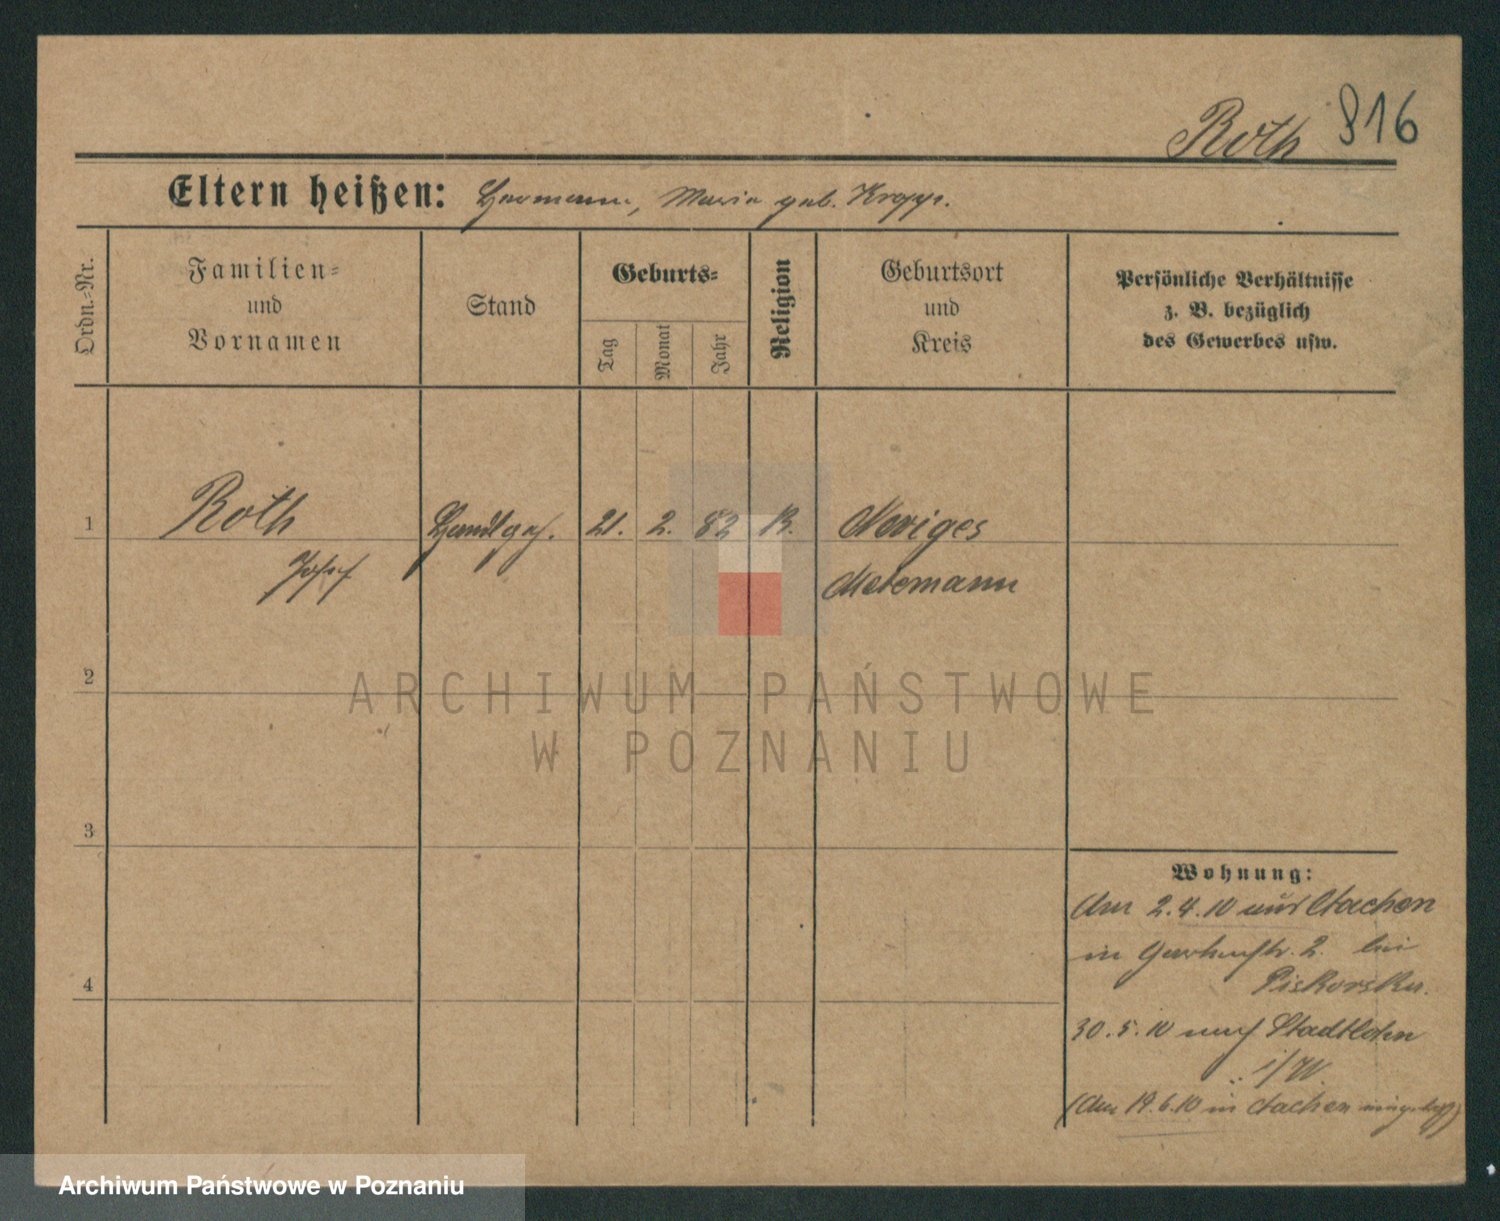 Roth 816
Eltern heißen: Hermann, Maria geb. Kropp.
Ordn.-Nr.
Familien-
und
Vornamen
Stand
Geburts-
Tag
Monat
Jahr
Religion
Geburtsort
und
Kreis
Persönliche Verhältnisse
z. B. bezüglich
des Gewerbes usw.
1 Roth 21. 2. 82 Neviges
Josef Metemann
2
ARCHIWUM PAŃSTWOWE
W POZNANIU
3
Wohnung:
Am 2.4.10 aus Aachen
in Gartenstr. 2. bei
Piskorska.
4
30.5.10 nach Stadtlohn
i/W.
(Am 19.6.10 in Aachen
Archiwum Państwowe w Poznaniu